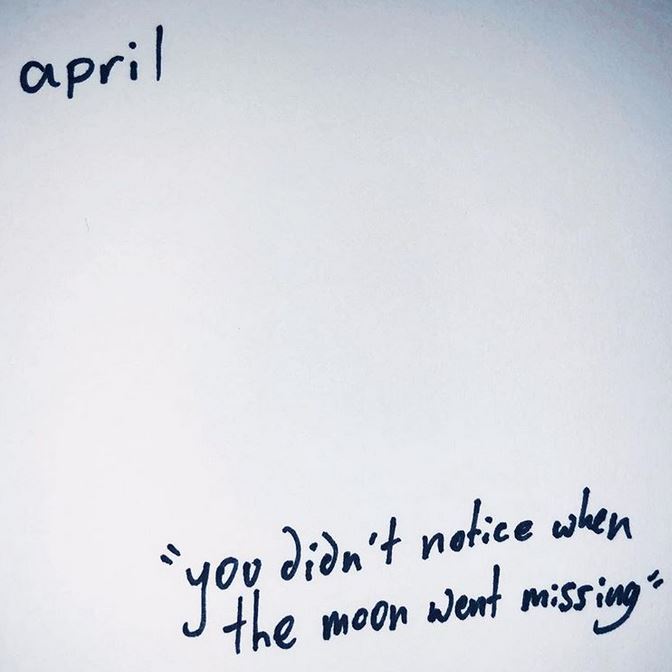 april
"you didn't notice when
the moon went missing"